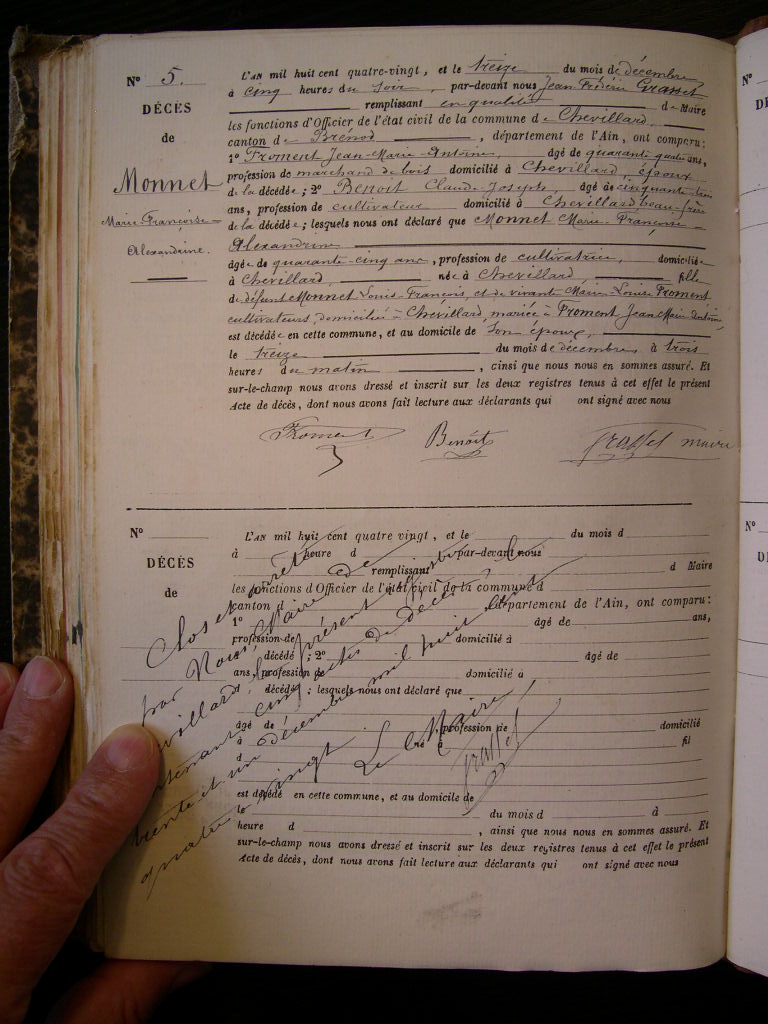 N° 5.
DÉCÈS
de
Monnet
Marie-Françoise-
Alexandrine.
L'AN mil huit cent quatre-vingt, et le treize du mois de décembre
à cinq heures du soir, par-devant nous Jean Frédéric Grasset
remplissant en qualité de Maire
les fonctions d'Officier de l'état civil de la commune de Chevillard,
canton de Brénod, département de l'Ain, ont comparu:
1° Froment Jean-Marie-Antoine, âgé de quarante quatre ans,
profession de marchand de bois domicilié à Chevillard, époux
de la décédée; 2° Benoit Claude-Joseph, âgé de cinquante-trois
ans, profession de cultivateur domicilié à Chevillard beau-frère
de la décédée; lesquels nous ont déclaré que Monnet Marie-Françoise-
Alexandrine
âgée de quarante-cinq ans, profession de cultivatrice, domiciliée
à Chevillard, née à Chevillard, fille
de défunt Monnet Louis-François, et de vivante Marie-Louise Froment
cultivateurs, domiciliés à Chevillard, mariée à Froment Jean Marie Antoine,
est décédée en cette commune, et au domicile de son époux,
le treize du mois de décembre, à trois
heures du matin, ainsi que nous nous en sommes assuré. Et
sur-le-champ nous avons dressé et inscrit sur les deux registres tenus à cet effet le présent
Acte de décès, dont nous avons fait lecture aux déclarants qui ont signé avec nous
Froment Benoit Grasset maire
N°
DÉCÈS
de
L'AN mil huit cent quatre vingt, et le du mois d
à heure d par-devant nous
remplissant d Maire
les fonctions d'Officier de l'état civil de la commune d
canton d, département de l'Ain, ont comparu:
1° âgé de ans,
profession de domicilié à
décédé; 2° âgé de
ans, profession de domicilié à
décédé; lesquels nous ont déclaré que
âgé de, profession de domicilié
à né à fil
d
est décédé en cette commune, et au domicile de
le du mois d à
heure d, ainsi que nous nous en sommes assuré. Et
sur-le-champ nous avons dressé et inscrit sur les deux registres tenus à cet effet le présent
Acte de décès, dont nous avons fait lecture aux déclarants qui ont signé avec nous
Clos et arrêté
par Nous, Maire de
villard, le présent registre
cinq actes de décès, le
trente et un décembre mil huit cent
quatre-vingt
Le Maire
Grasset